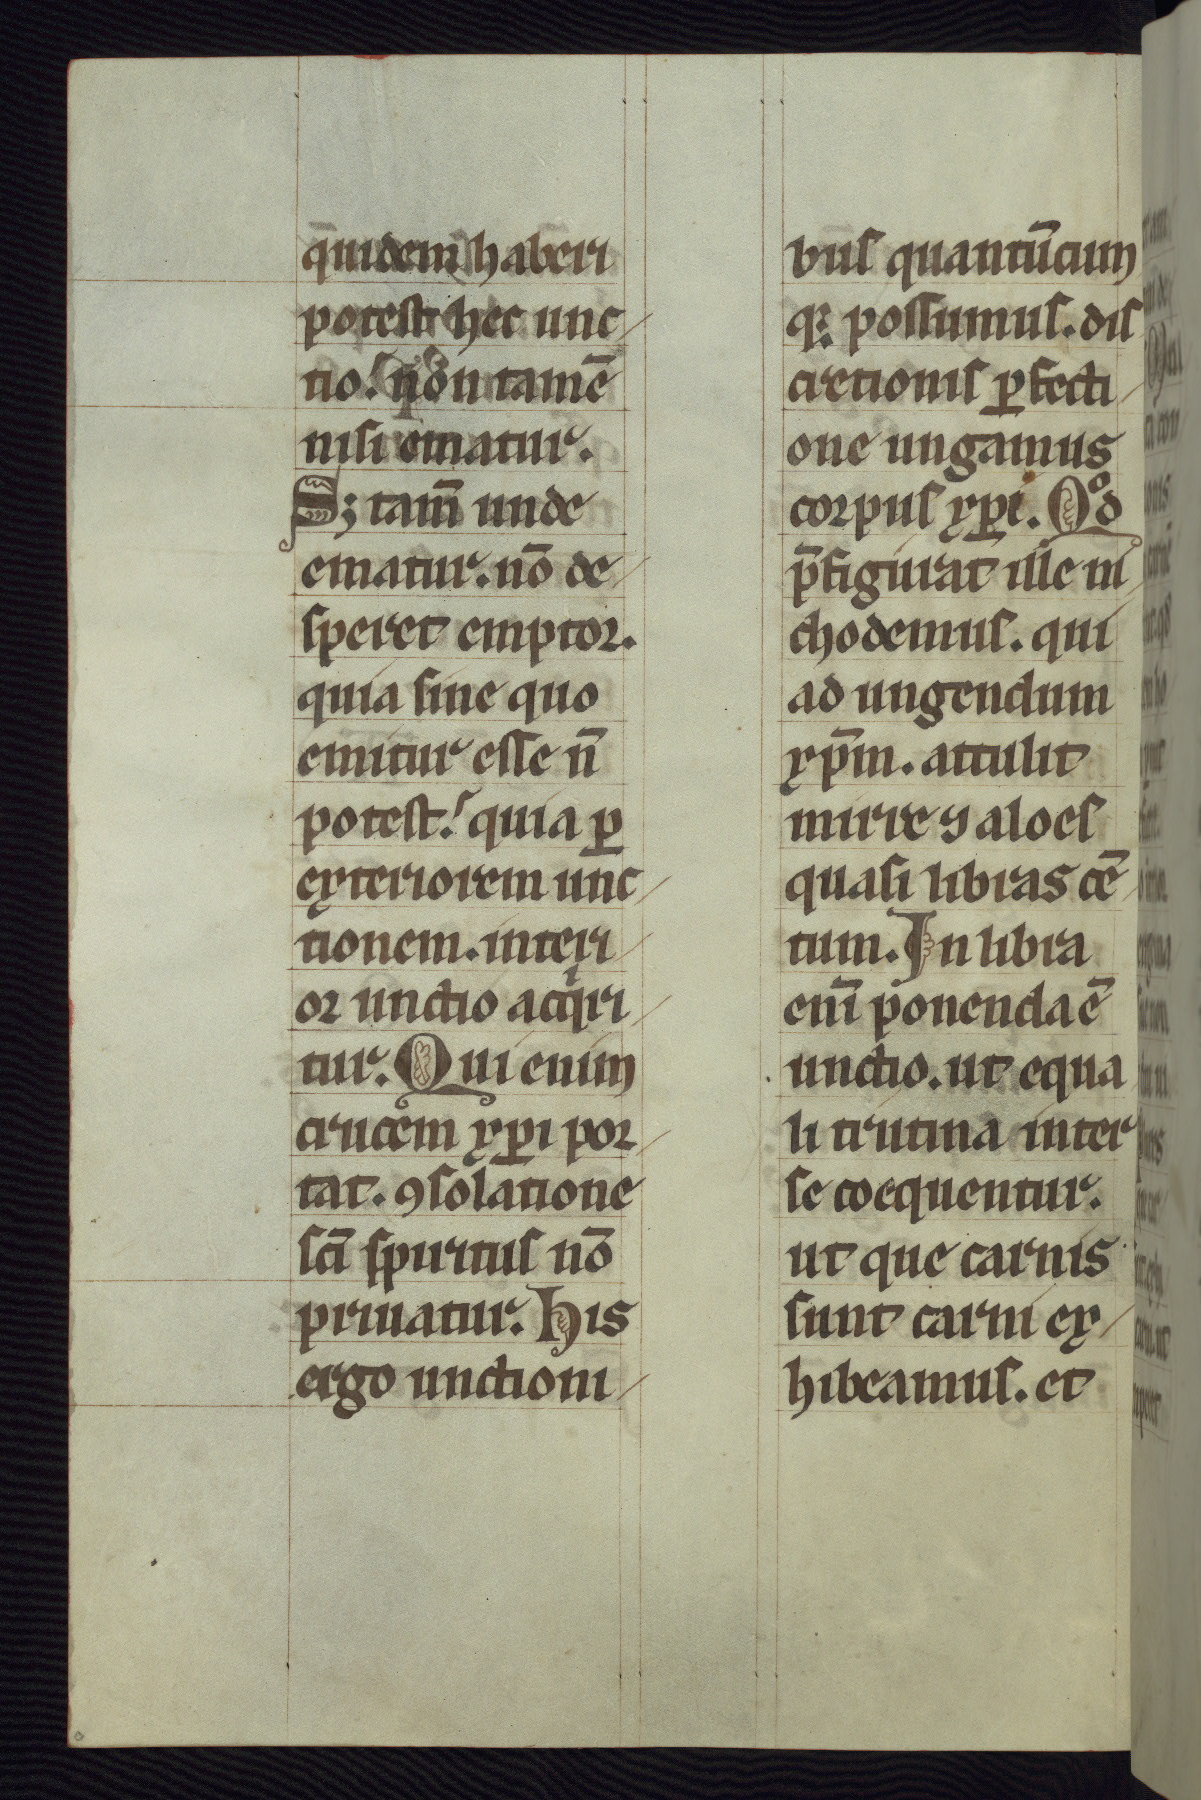 q̄uidem haberi
potest hec unc
tio. non tam̄e
nisi ematur.
S; tam̄ unde
ematur. nō de
speret emptor.
quia sine quo
emitur esse n̄
potest. quia ꝑ
exteriorem unc
tionem. interi
or unctio acq̇ri
tur. Qui enim
crucem xp̄i por
tat. ꝯsolatione
sc̄i spiritus nō
priuatur. His
ergo unctioni
bus quantūcum
qꝫ possumus. dis
cretionis ꝑfecti
one ungamus
corpus xp̄i. Qͦd
p̄figurat ille ni
chodemus. qui
ad ungendum
xp̄m. attulit
mirre ꝯ aloes
quasi libras cē
tum. In libra
eni̅ ponenda ē
unctio. ut equa
li trutina inter
se coequentur.
ut que carnis
sunt carni ex
hibeamus. et